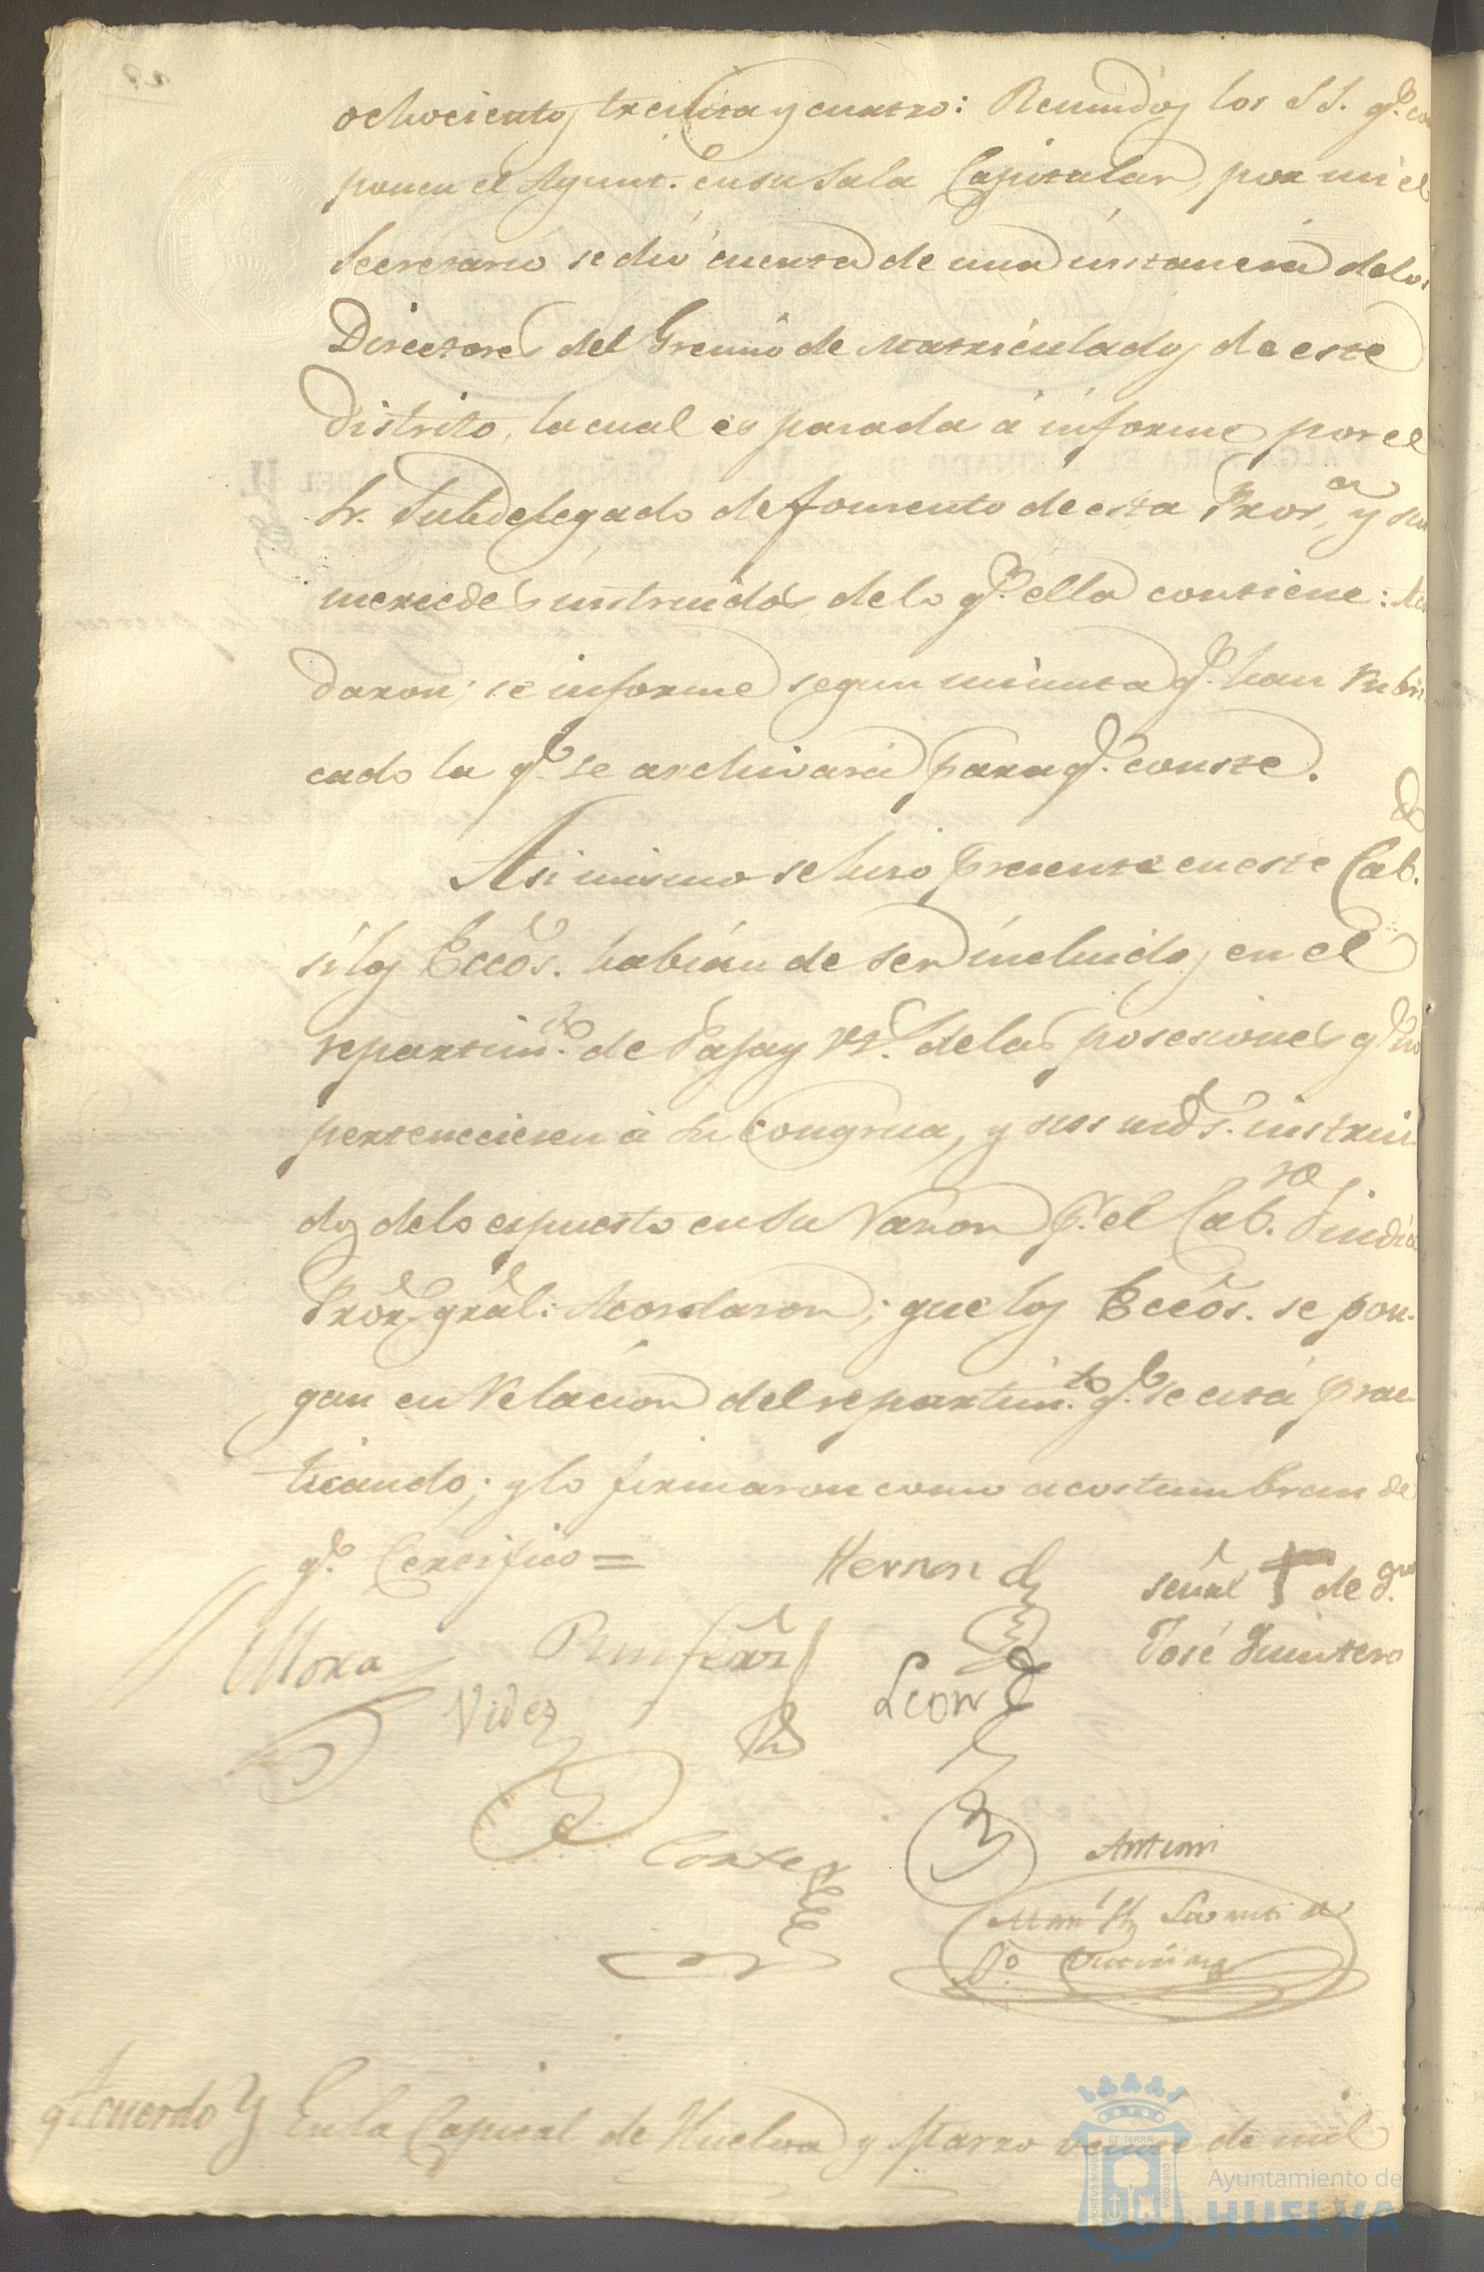 ochocientos treinta y cuatro: Reunidos los SS. q.e com
ponen el Ayunt.o en su Sala Capitular, por mi el
Secretario se dió cuenta de una instancia de los
Directores del Gremio de Matriculados de este
Distrito, la cual es pasada á informe por el
Sr. Subdelegado de fomento de esta Prov.a, y sus
mercedes instruidos de lo q.e ella contiene: Acor
daron; se informe segun minuta q.e han rubri
cado la q.e se archivará para q.e conste.
Asi mismo se hizo presente en este Cab.do
si los Eccos. habian de ser incluidos en el
repartim.to de Paja y de las posesiones q.e no
perteneciesen á su Congrua, y sus mds. instrui
dos de lo espuesto en su razon p.r el Cab.ro Sindico
Pror. gral: Acordaron; que los Eccos. se pon-
gan en relacion del repartim.to q.e se está prac
ticando; y lo firmaron como acostumbran de
q.e Certifico =
Hernan
señal + de D.n
Mora
José Quintero
Leon
Videz
Cortes
Antoni
Acuerdo En la Capital de Huelva y Marzo veinte de mil
PORTUS MARIS ET TERRAE CUSTODIA
Ayuntamiento de
HUELVA